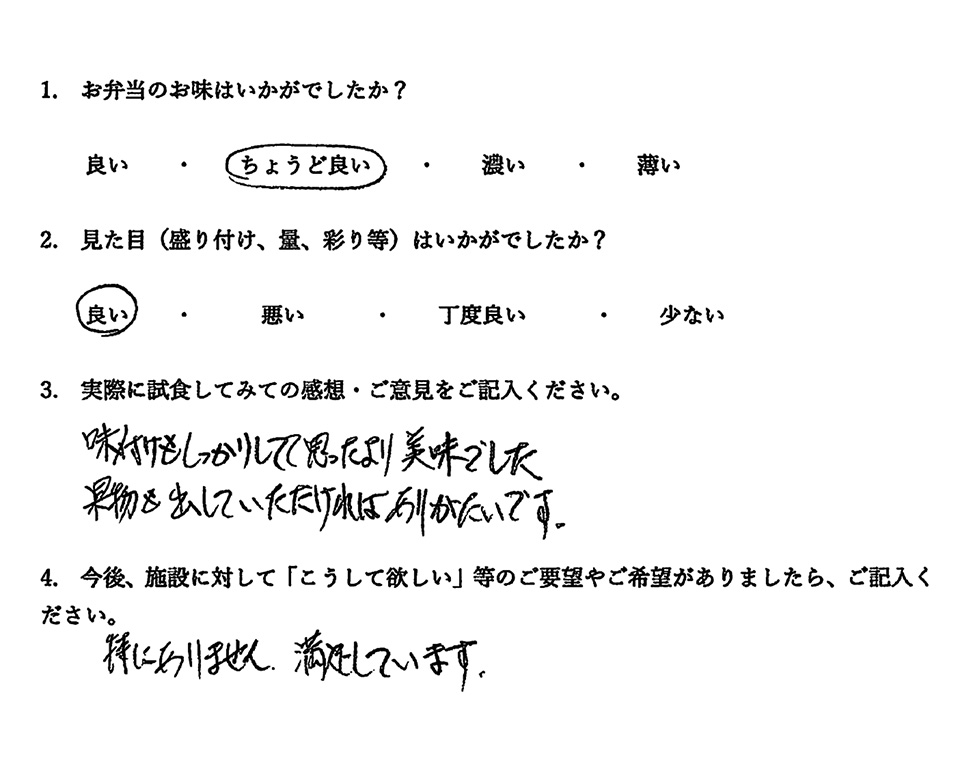 1. お弁当のお味はいかがでしたか？
良い ・ ちょうど良い ・ 濃い ・ 薄い
2. 見た目（盛り付け、量、彩り等）はいかがでしたか？
良い ・ 悪い ・ 丁度良い ・ 少ない
3. 実際に試食してみての感想・ご意見をご記入ください。
味付けもしっかりしてて思ったより美味でした
果物も出していただければありがたいです.
4. 今後、施設に対して「こうして欲しい」等のご要望やご希望がありましたら、ご記入く
ださい。
特にありません. 満足しています.